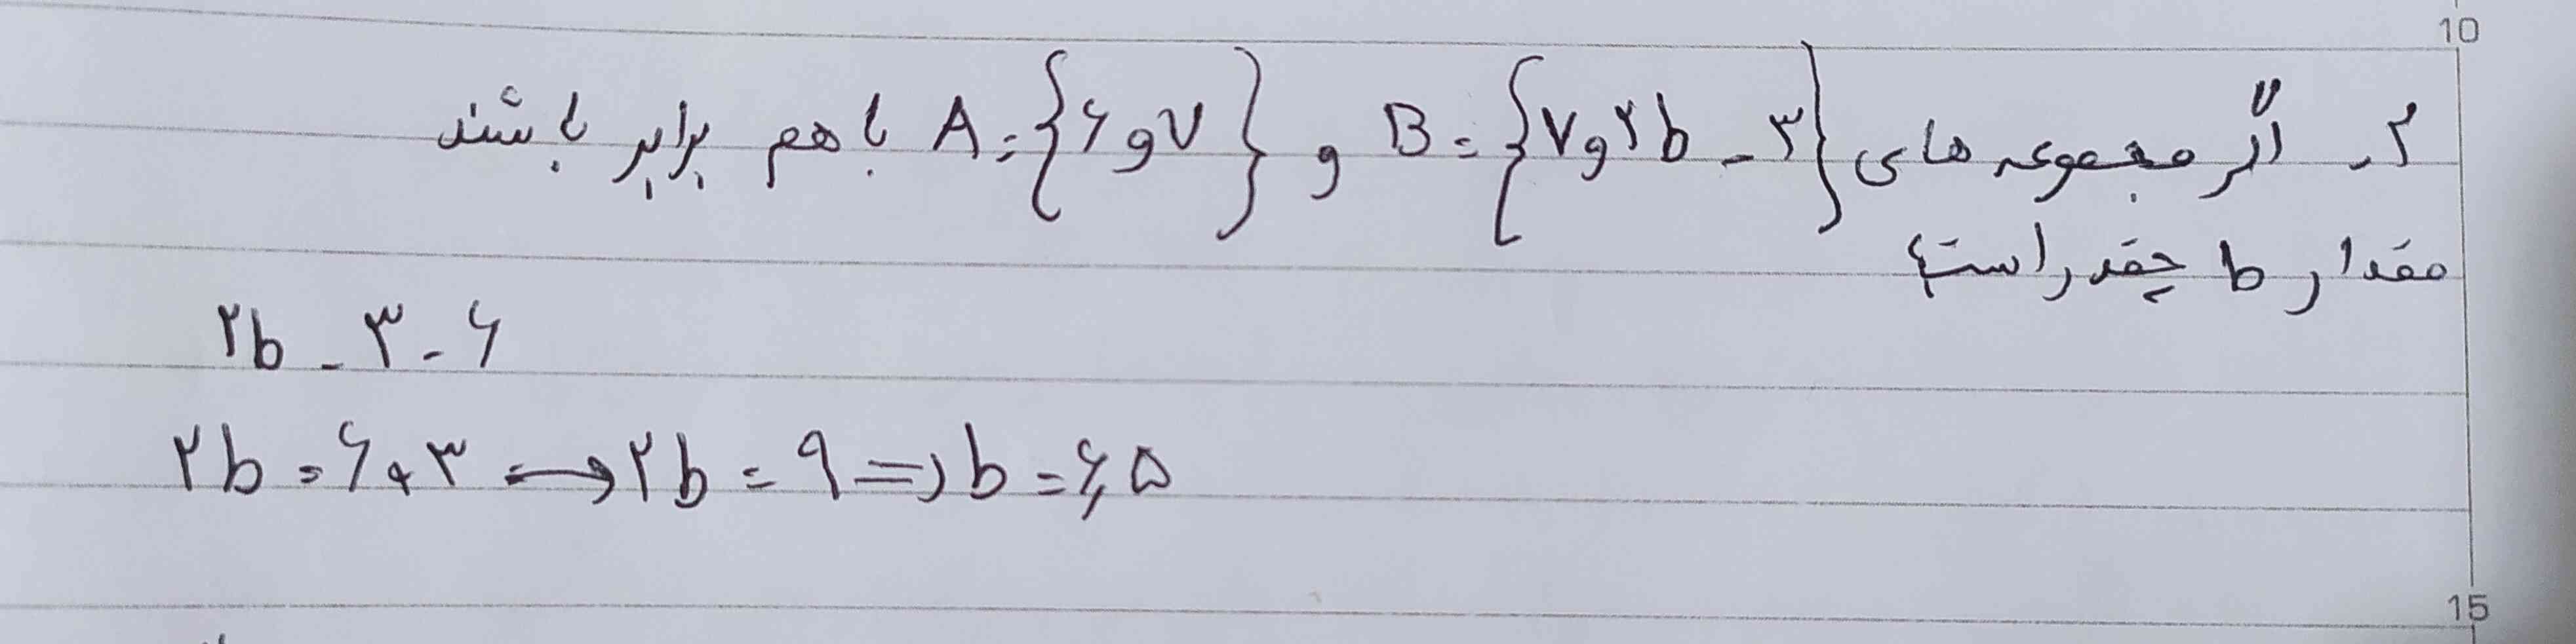 10
۲ـ اگر مجموعه های B = {۷ و ۲b - ۳} و A = {۶ و ۷} با هم برابر باشند
مقدار b چقدر است؟
۲b - ۳ - ۶
۲b = ۶ + ۳ → ۲b = ۹ => b = ۴,۵
15